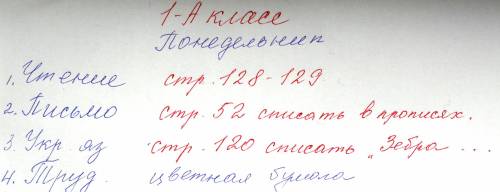 1-А класс
Понедельник
1. Чтение стр. 128-129
2. Письмо стр. 52 списать в прописях.
3. Укр. яз стр. 120 списать „Зебра ...
4. Труд. цветная бумага